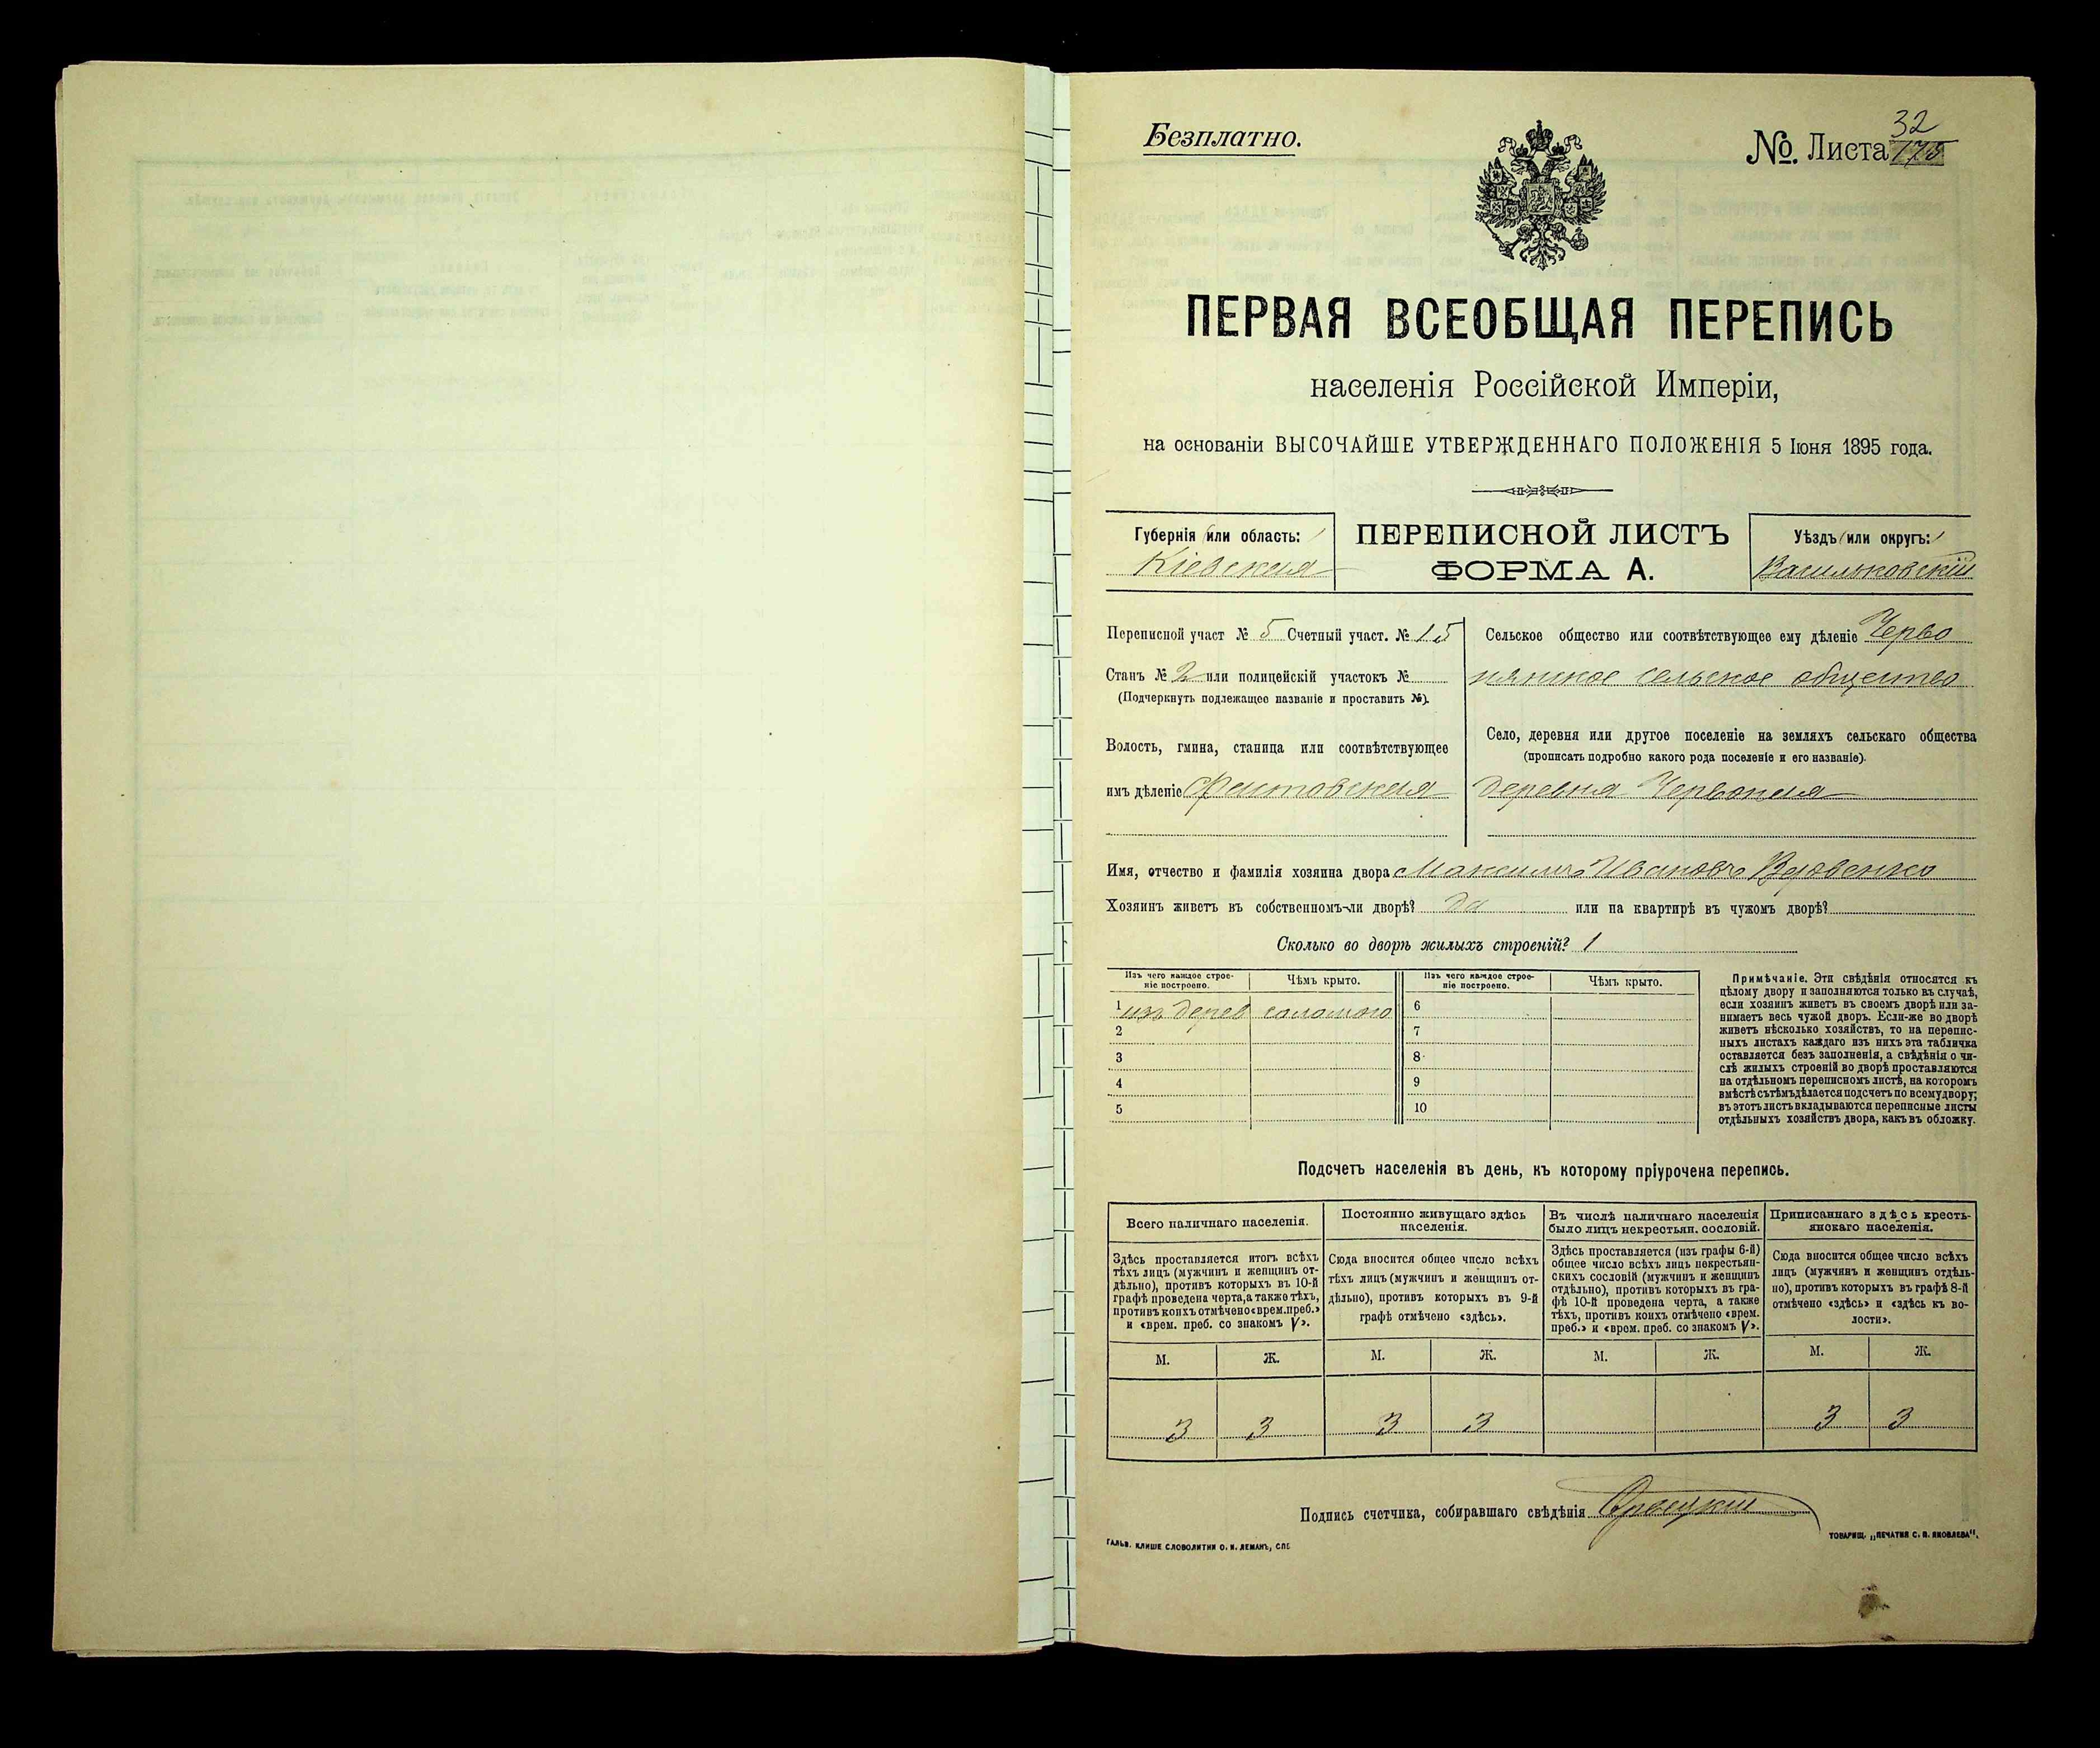 Безплатно.
№. Листа 32
175
ПЕРВАЯ ВСЕОБЩАЯ ПЕРЕПИСЬ
населенія Россійской Имперіи,
на основаніи ВЫСОЧАЙШЕ УТВЕРЖДЕННАГО ПОЛОЖЕНІЯ 5 Іюня 1895 года.
Губернія или область:
Кіевская
ПЕРЕПИСНОЙ ЛИСТЪ
ФОРМА А.
Уѣздъ или округъ:
Васильковскій
Переписной участ № 5 Счетный участ. № 15
Станъ № 2 или полицейскій участокъ №
(Подчеркнуть подлежащее названіе и проставить №).
Волость, гмина, станица или соотвѣтствующее
имъ дѣленіе Фастовская
Сельское общество или соотвѣтствующее ему дѣленіе Черво
нянское сельское общество
Село, деревня или другое поселеніе на земляхъ сельскаго общества
(прописать подробно какого рода поселеніе и его названіе).
деревня Червоная
Имя, отчество и фамилія хозяина двора Максимъ Ивановъ Вдовенко
Хозяинъ живетъ въ собственномъ-ли дворѣ? да или на квартирѣ въ чужомъ дворѣ?
Сколько во дворѣ жилыхъ строеній? 1
Изъ чего каждое строе-
ніе построено.
Чѣмъ крыто.
Изъ чего каждое строе-
ніе построено.
Чѣмъ крыто.
1 изъ дерев соломою 6
2 7
3 8
4 9
5 10
Примѣчаніе. Эти свѣдѣнія относятся къ
цѣлому двору и заполняются только въ случаѣ,
если хозяинъ живетъ въ своемъ дворѣ или за-
нимаетъ весь чужой дворъ. Если-же во дворѣ
живетъ нѣсколько хозяйствъ, то на перепис-
ныхъ листахъ каждаго изъ нихъ эта табличка
оставляется безъ заполненія, а свѣдѣнія о чи-
слѣ жилыхъ строеній во дворѣ проставляются
на отдѣльномъ переписномъ листѣ, на которомъ
вмѣстѣ съ тѣмъ дѣлается подсчетъ по всему двору;
въ этотъ листъ вкладываются переписные листы
отдѣльныхъ хозяйствъ двора, какъ въ обложку.
Подсчетъ населенія въ день, къ которому пріурочена перепись.
Всего наличнаго населенія.
Здѣсь проставляется итогъ всѣхъ
тѣхъ лицъ (мужчинъ и женщинъ от-
дѣльно), противъ которыхъ въ 10-й
графѣ проведена черта, а также тѣхъ,
противъ коихъ отмѣчено «врем. преб.»
и «врем. преб. со знакомъ V».
Постоянно живущаго здѣсь
населенія.
Сюда вносится общее число всѣхъ
тѣхъ лицъ (мужчинъ и женщинъ от-
дѣльно), противъ которыхъ въ 9-й
графѣ отмѣчено «здѣсь».
Въ числѣ наличнаго населенія
было лицъ некрестьян. сословій.
Здѣсь проставляется (изъ графы 6-й)
общее число всѣхъ лицъ некрестьян-
скихъ сословій (мужчинъ и женщинъ
отдѣльно), противъ которыхъ въ гра-
фѣ 10-й проведена черта, а также
тѣхъ, противъ коихъ отмѣчено «врем.
преб.» и «врем. преб. со знакомъ V».
Приписаннаго здѣсь кресть-
янскаго населенія.
Сюда вносится общее число всѣхъ
лицъ (мужчинъ и женщинъ отдѣль-
но), противъ которыхъ въ графѣ 8-й
отмѣчено «здѣсь» и «здѣсь къ во-
лости».
М. Ж. М. Ж. М. Ж. М. Ж.
3 3 3 3 3 3
Подпись счетчика, собиравшаго свѣдѣнія
ГАЛЬВ. КЛИШЕ СЛОВОЛИТНИ О. И. ЛЕМАНЪ, СПБ
ТОВАРИЩ. „ПЕЧАТНЯ С. П. ЯКОВЛЕВА".